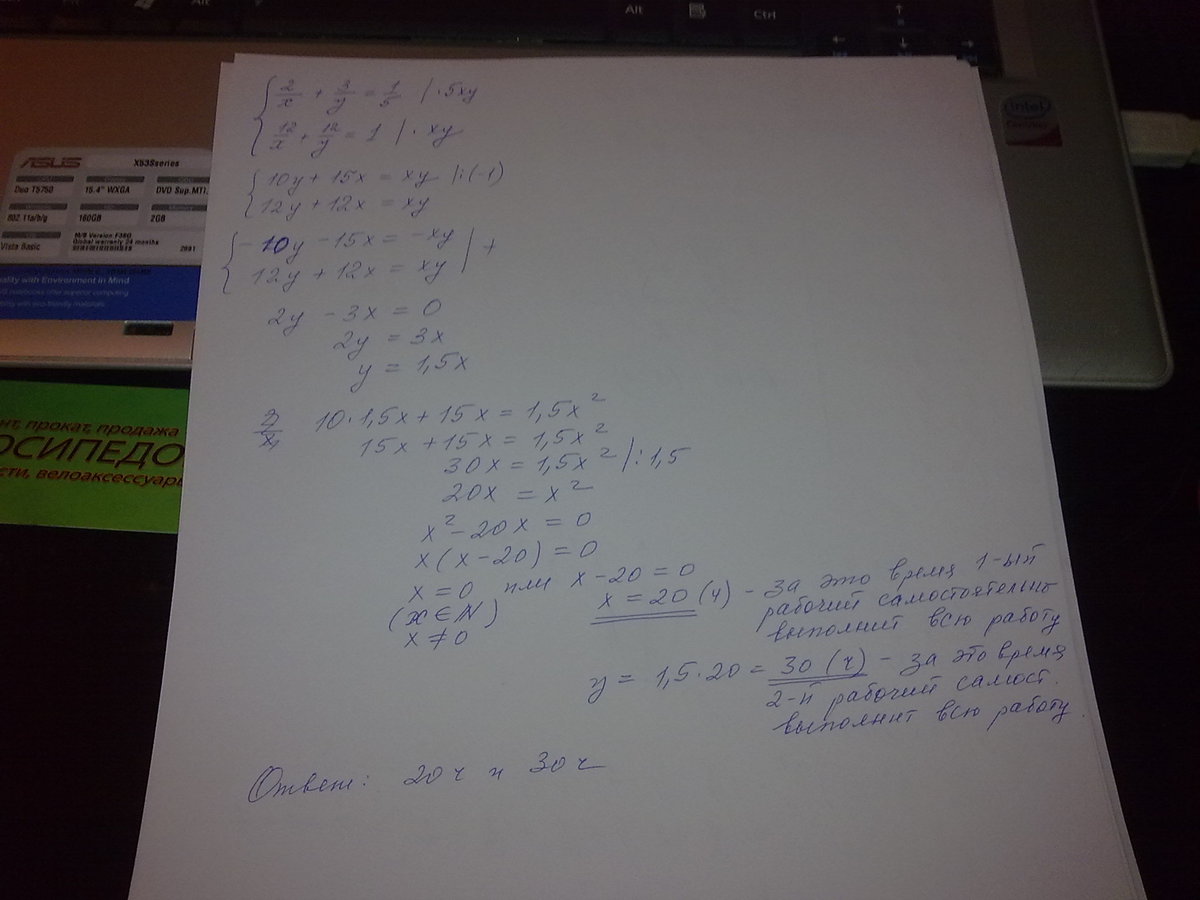 Alt
Ctrl
intel
ASUS
X53Sseries
Duo T5750
15.4" WXGA
DVD Sup.MTI.
802.11a/b/g
160GB
2GB
Vista Basic
Global warranty 24 months
ality with Environment in Mind
нт, прокат, продажа
ОСИПЕДО
сти, велоаксессуары
2/x + 3/y = 1/5 | · 5xy
12/x + 12/y = 1 | · xy
10y + 15x = xy |:(-1)
12y + 12x = xy
-10y - 15x = -xy | +
12y + 12x = xy
2y - 3x = 0
2y = 3x
y = 1,5x
10·1,5x + 15x = 1,5x²
15x + 15x = 1,5x²
30x = 1,5x² |:1,5
20x = x²
x² - 20x = 0
x(x-20) = 0
x = 0 или x - 20 = 0
(x ∈ N) x = 20 (ч) - за это время 1-ый
x ≠ 0 рабочий самостоятельно
выполнит всю работу
y = 1,5·20 = 30 (ч) - за это время
2-й рабочий самост.
выполнит всю работу.
Ответ: 20 ч и 30 ч